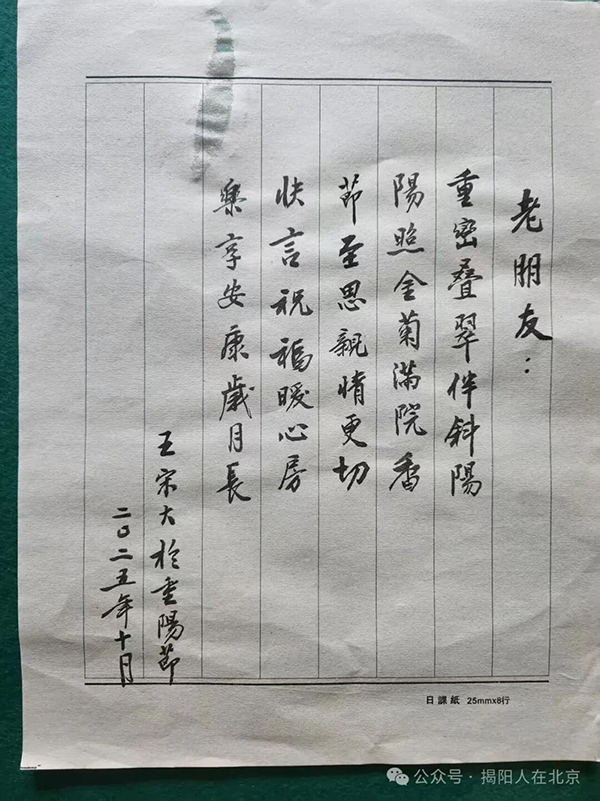 老朋友：
重密叠翠伴斜陽
陽照金菊滿院香
節至思親情更切
快言祝福暖心房
樂享安康歲月長
王宋大於重陽節
二〇二五年十月
日課紙 25mmx8行
公众号·揭阳人在北京